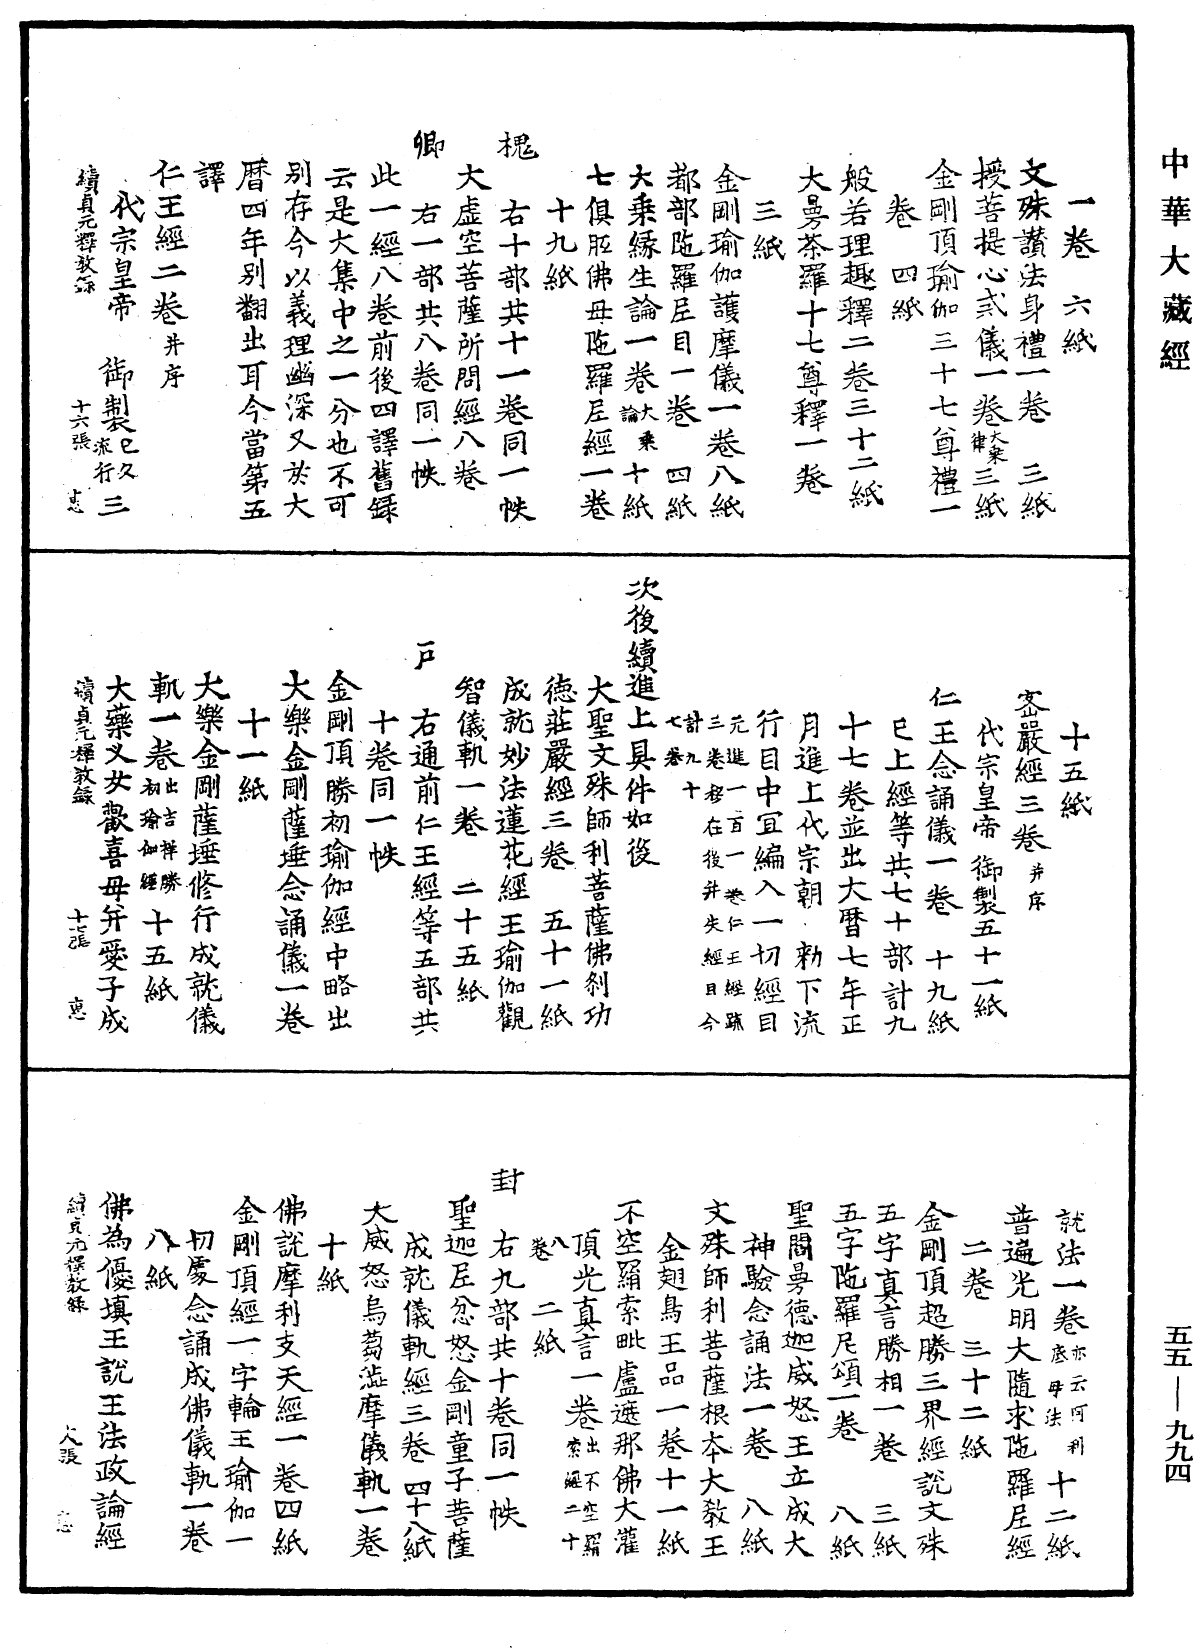 中華大藏經
一卷　六紙
文殊讃法身禮一卷　三紙
授菩提心戒儀一卷大乘律三紙
金剛頂瑜伽三十七尊禮一
卷　四紙
般若理趣釋二卷三十二紙
大曼荼羅十七尊釋一卷
三紙
金剛瑜伽護摩儀一卷八紙
都部陁羅尼目一卷　四紙
大乘緣生論一卷大乘論十紙
七俱胝佛母陁羅尼經一卷
十九紙
槐　右十部共十一卷同一帙
大虛空菩薩所問經八卷
卿　右一部共八卷同一帙
此一經八卷前後四譯舊錄
云是大集中之一分也不可
別存今以義理幽深又於大
曆四年別翻出耳今當第五
譯
仁王經二卷并序
代宗皇帝　御製已久流行三
續貞元釋教錄　十六張　惠
十五紙
密嚴經三卷并序
代宗皇帝　御製五十一紙
仁王念誦儀一卷　十九紙
已上經等共七十部計九
十七卷並出大曆七年正
月進上代宗朝　勑下流
行目中冝編入一切經目
元進一百一卷仁王經疏
三卷移在後并失經目今
計九十
七卷
次後續進上具件如後
大聖文殊師利菩薩佛刹功
德莊嚴經三卷　五十一紙
成就妙法蓮花經王瑜伽觀
智儀軌一卷　二十五紙
戶　右通前仁王經等五部共
十卷同一帙
金剛頂勝初瑜伽經中略出
大樂金剛薩埵念誦儀一卷
十一紙
大樂金剛薩埵修行成就儀
軌一卷出吉祥勝初瑜伽經十五紙
大藥叉女歡喜母并愛子成
續貞元釋教錄　十七張　惠
就法一卷亦云阿利底母法十二紙
普遍光明大隨求陁羅尼經
二卷　三十二紙
金剛頂超勝三界經說文殊
五字真言勝相一卷　三紙
五字陁羅尼頌一卷　八紙
聖閻曼德迦威怒王立成大
神驗念誦法一卷　八紙
文殊師利菩薩根本大教王
金翅鳥王品一卷十一紙
不空羂索毗盧遮那佛大灌
頂光真言一卷出不空羂索經二十
八卷　二紙
封　右九部共十卷同一帙
聖迦尼忿怒金剛童子菩薩
成就儀軌經三卷　四十八紙
大威怒烏蒭澁摩儀軌一卷
十紙
佛說摩利支天經一卷四紙
金剛頂經一字輪王瑜伽一
切處念誦成佛儀軌一卷
八紙
佛為優填王說王法政論經
續貞元釋教錄　大張
五五—九九四